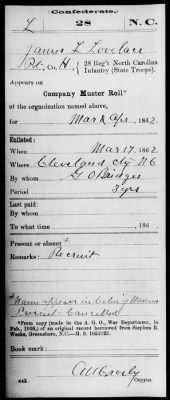 Confederate.
L 28 N.C.
James L Lovelace
Pt, Co. H, 28 Reg't North Carolina
Infantry (State Troops).
Appears on
Company Muster Roll*
of the organization named above,
for Mar & Apr, 1862.
Enlisted:
When Mar 17, 1862
Where Cleveland Cty N.C.
By whom G O Bridges
Period 3 yrs
Last paid:
By whom
To what time , 186 .
Present or absent†
Remarks: Recruit
†Name appears in column of Names
Present. Cancelled
*From copy (made in the A. G. O., War Department, in
of an original record borrowed from Stephen B.
Weeks, Greensboro, N.C.—M. S.
Book mark:
(642) Copyist.